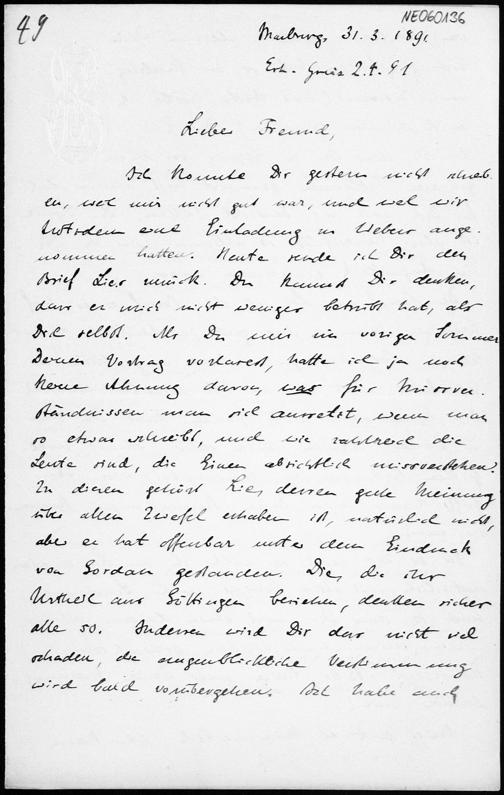 49
NE060136
Marburg, 31. 3. 1891
Erh. Graz 2. 4. 91
Lieber Freund,
Ich konnte Dir gestern nicht schreib-
en, weil mir nicht gut war, und weil wir
trotzdem eine Einladung zu Webers ange-
nommen hatten. Heute sende ich Dir den
Brief Lies zurück. Du kannst Dir denken,
dass er mich nicht weniger betrübt hat, als
Dich selbst. Als Du mir im vorigen Sommer
Deinen Vortrag vorlasest, hatte ich ja noch
keine Ahnung davon, was für Missver-
ständnissen man sich aussetzt, wenn man
so etwas schreibt, und wie zahlreich die
Leute sind, die Einen absichtlich missverstehen.
Zu diesen gehört Lie, dessen gute Meinung
über allen Zweifel erhaben ist, natürlich nicht,
aber er hat offenbar unter dem Eindruck
von Gordan gestanden. Die, die ihr
Urtheil aus Göttingen beziehen, denken sicher
alle so. Indessen wird Dir das nicht viel
schaden, die augenblickliche Verstimmung
wird bald vorübergehen. Ich habe auch